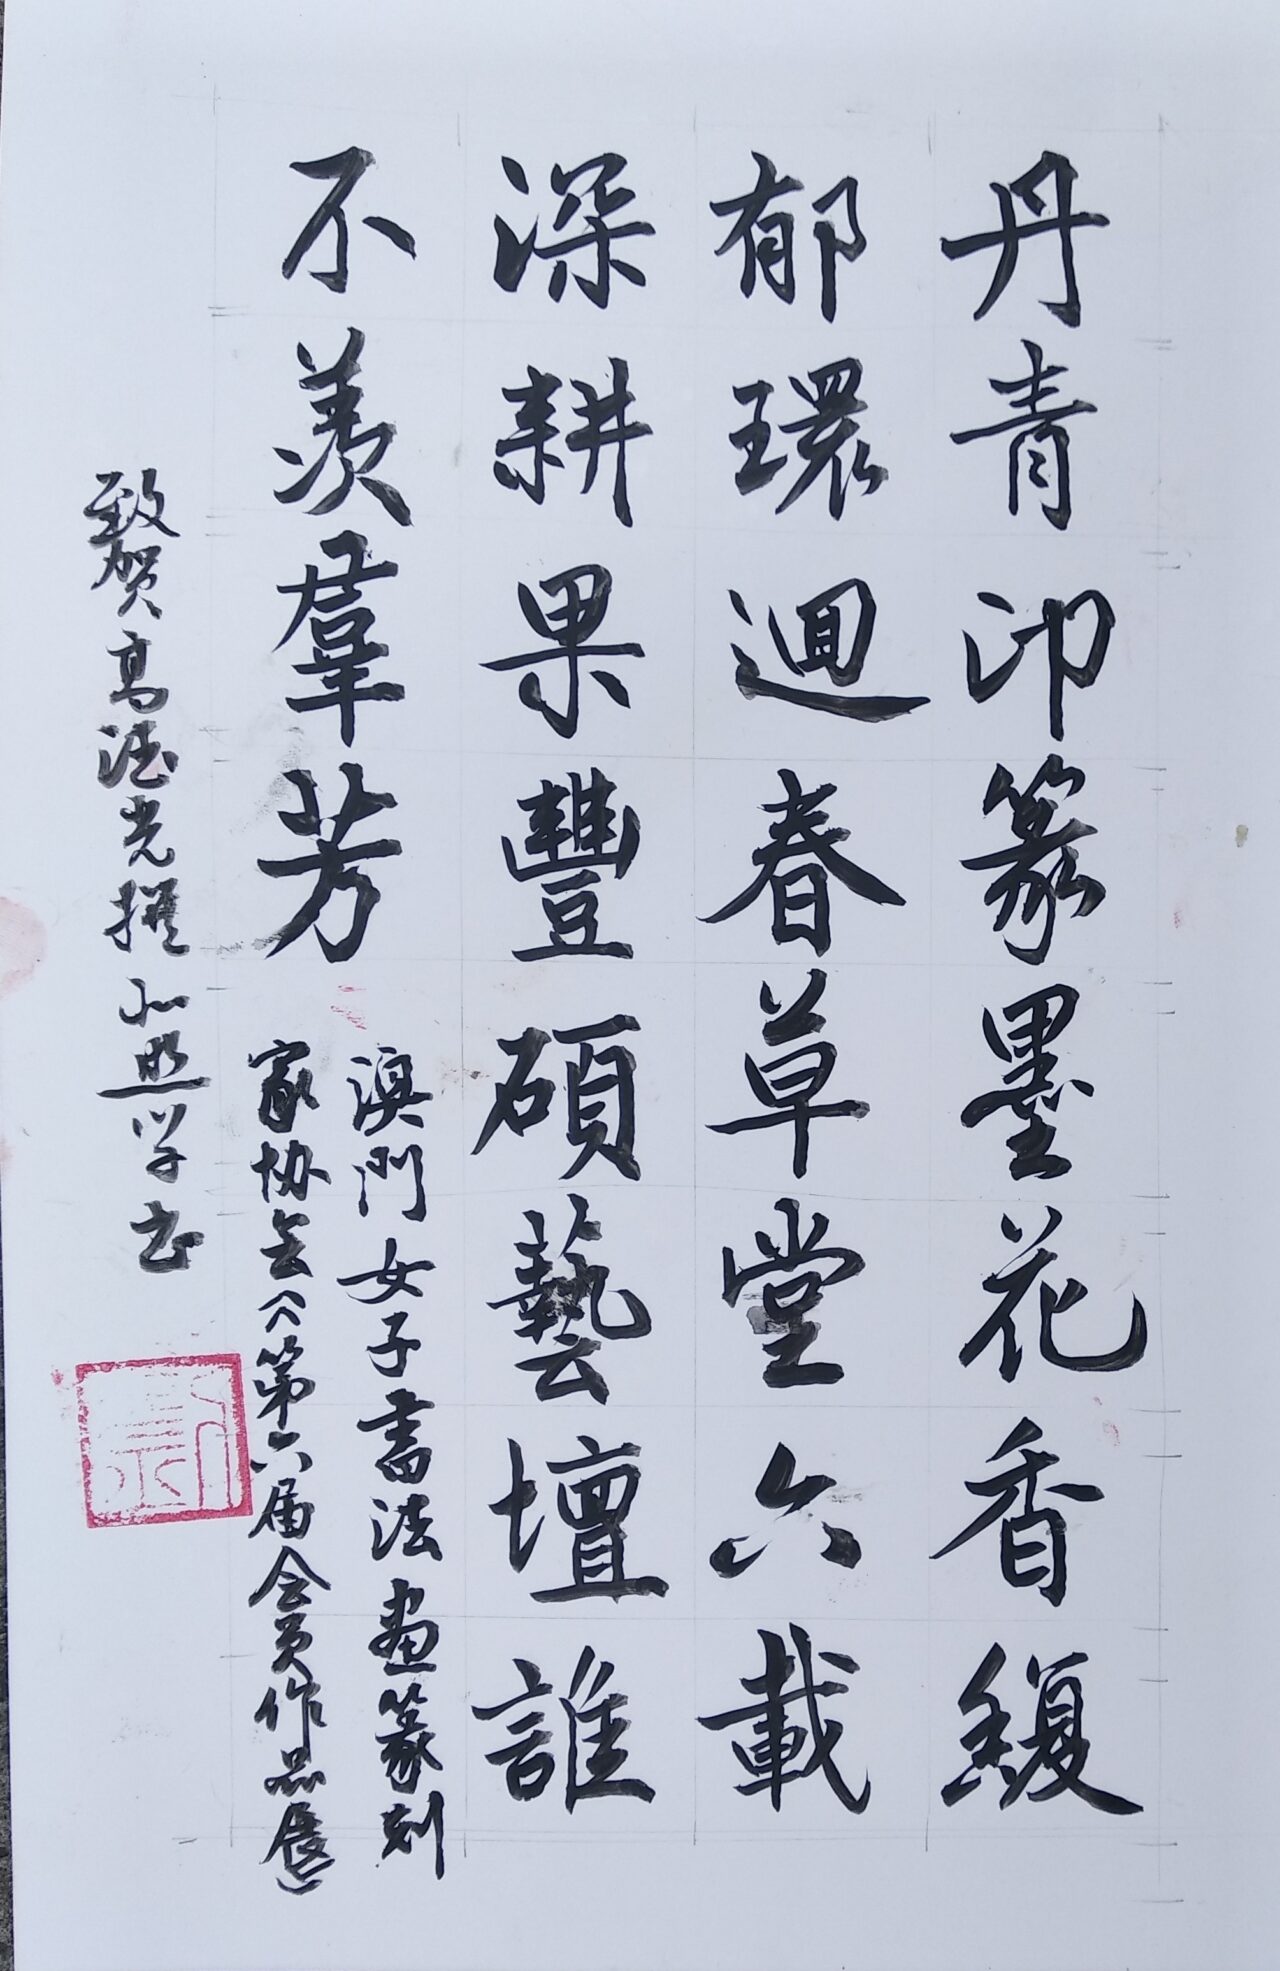 丹青印篆墨花香馥
郁環迴春草堂六載
深耕果豐碩藝壇誰
不羨羣芳
澳門女子書法畫篆刻
家协会《第六届会员作品展》
致贺高德光撰 学书